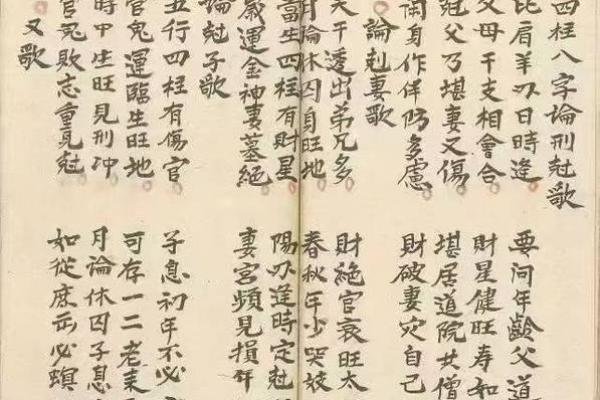 四柱八字論刑尅歌
比肩羊刃日時逢 要问年齡父道
父母干支相會合 財星健旺寿如
尅父乃堪妻又傷 堪居道院共僧
身作伴仍多慮 財破妻灾自己
論尅妻歌
天干透出弟兄多 財絕官衰旺太
月論休囚身旺地 春秋年少哭妓
當生四柱有財星 陽刃逢時定尅
歲運金神妻墓絕 妻宮頻見損年
論尅子歌
五行四柱有傷官 子息初年不必
官鬼運臨生旺地 可存一二老来
時中生旺見刑冲 月論休囚子息
官鬼敗志重見尅 如從庶出必螟
又歌